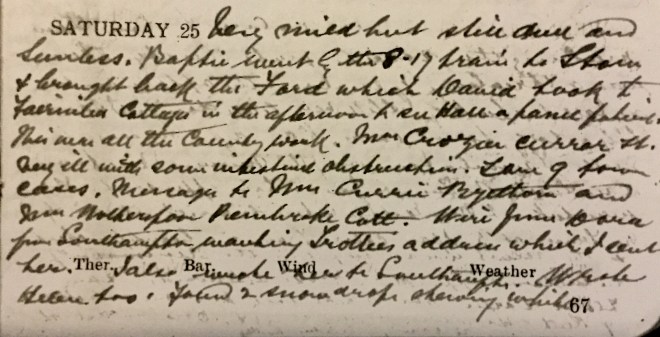 SATURDAY 25 Very mild but still dull and
Sunless. Baptie went by the 8-17 train to
& brought back the Ford which David took to
Cottages in the afternoon to see Hall a panel patient.
This was all the County work. Mrs Crozier Currar St.
Very ill with some intestinal obstruction. of town
cases. Message to Mrs Currie Rython and
Mrs Motherspoon Pembroke Cott. Wire from Dora
from Southampton wanting Trotties address which I sent
her. Ther. I also Bar. wrote Wind her to Southampton. Weather Wrote
Helen too. Found 2 snowdrops showing white
67